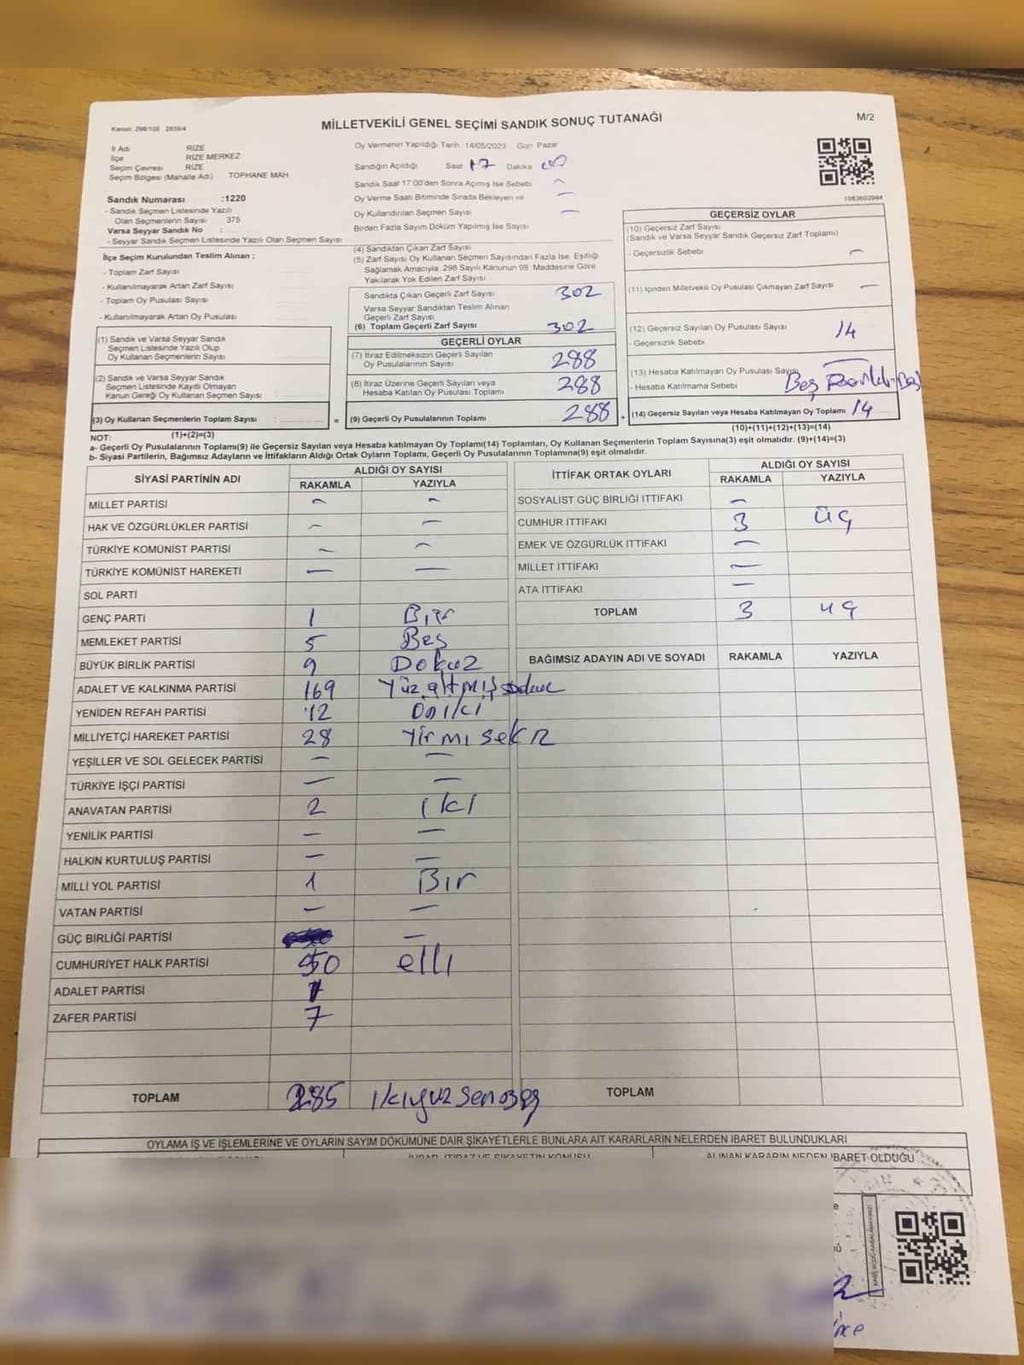 Kanun: 298/105 2839/4
MİLLETVEKİLİ GENEL SEÇİMİ SANDIK SONUÇ TUTANAĞI
M/2
İl Adı RİZE
İlçe RİZE MERKEZ
Seçim Çevresi RİZE
Seçim Bölgesi (Mahalle Adı) TOPHANE MAH
Sandık Numarası :1220
- Sandık Seçmen Listesinde Yazılı
Olan Seçmenlerin Sayısı 375
Varsa Seyyar Sandık No :
- Seyyar Sandık Seçmen Listesinde Yazılı Olan Seçmen Sayısı
İlçe Seçim Kurulundan Teslim Alınan ;
- Toplam Zarf Sayısı
- Kullanılmayarak Artan Zarf Sayısı
- Toplam Oy Pusulası Sayısı
- Kullanılmayarak Artan Oy Pusulası
(1) Sandık ve Varsa Seyyar Sandık
Seçmen Listesinde Yazılı Olup
Oy Kullanan Seçmenlerin Sayısı
(2) Sandık ve Varsa Seyyar Sandık
Seçmen Listesinde Kaydı Olmayan
Kanun Gereği Oy Kullanan Seçmen Sayısı
(3) Oy Kullanan Seçmenlerin Toplam Sayısı
=
(1)+(2)=(3)
Oy Vermenin Yapıldığı Tarih 14/05/2023 Gün Pazar
Sandığın Açıldığı Saat 17 Dakika 00
Sandık Saat 17:00'den Sonra Açılmış İse Sebebi —
Oy Verme Saati Bitiminde Sırada Bekleyen ve —
Oy Kullandırılan Seçmen Sayısı —
Birden Fazla Sayım Döküm Yapılmış İse Sayısı
(4) Sandıktan Çıkan Zarf Sayısı
(5) Zarf Sayısı Oy Kullanan Seçmen Sayısından Fazla İse, Eşitliği
Sağlamak Amacıyla, 298 Sayılı Kanunun 98. Maddesine Göre
Yakılarak Yok Edilen Zarf Sayısı
Sandıkta Çıkan Geçerli Zarf Sayısı 302
Varsa Seyyar Sandıktan Teslim Alınan
Geçerli Zarf Sayısı
(6) Toplam Geçerli Zarf Sayısı 302
GEÇERLİ OYLAR
(7) İtiraz Edilmeksizin Geçerli Sayılan
Oy Pusulalarının Sayısı 288
(8) İtiraz Üzerine Geçerli Sayılan veya
Hesaba Katılan Oy Pusulası Toplamı 288
(9) Geçerli Oy Pusulalarının Toplamı 288
1083602984
GEÇERSİZ OYLAR
(10) Geçersiz Zarf Sayısı
(Sandık ve Varsa Seyyar Sandık Geçersiz Zarf Toplamı)
- Geçersizlik Sebebi —
(11) İçinden Milletvekili Oy Pusulası Çıkmayan Zarf Sayısı —
(12) Geçersiz Sayılan Oy Pusulası Sayısı 14
- Geçersizlik Sebebi
(13) Hesaba Katılmayan Oy Pusulası Sayısı —
- Hesaba Katılmama Sebebi Beş
(14) Geçersiz Sayılan veya Hesaba Katılmayan Oy Toplamı 14
(10)+(11)+(12)+(13)=(14)
NOT:
a- Geçerli Oy Pusulalarının Toplamı(9) ile Geçersiz Sayılan veya Hesaba katılmayan Oy Toplamı(14) Toplamları, Oy Kullanan Seçmenlerin Toplam Sayısına(3) eşit olmalıdır. (9)+(14)=(3)
b- Siyasi Partilerin, Bağımsız Adayların ve İttifakların Aldığı Ortak Oyların Toplamı, Geçerli Oy Pusulalarının Toplamına(9) eşit olmalıdır.
SİYASİ PARTİNİN ADI
ALDIĞI OY SAYISI
RAKAMLA YAZIYLA
MİLLET PARTİSİ — —
HAK VE ÖZGÜRLÜKLER PARTİSİ — —
TÜRKİYE KOMÜNİST PARTİSİ — —
TÜRKİYE KOMÜNİST HAREKETİ — —
SOL PARTİ
GENÇ PARTİ 1 Bir
MEMLEKET PARTİSİ 5 Beş
BÜYÜK BİRLİK PARTİSİ 9 Dokuz
ADALET VE KALKINMA PARTİSİ 169
YENİDEN REFAH PARTİSİ 12 Oniki
MİLLİYETÇİ HAREKET PARTİSİ 28 Yirmi sekiz
YEŞİLLER VE SOL GELECEK PARTİSİ — —
TÜRKİYE İŞÇİ PARTİSİ — —
ANAVATAN PARTİSİ 2 iki
YENİLİK PARTİSİ — —
HALKIN KURTULUŞ PARTİSİ — —
MİLLİ YOL PARTİSİ 1 Bir
VATAN PARTİSİ — —
GÜÇ BİRLİĞİ PARTİSİ —
CUMHURİYET HALK PARTİSİ 50 elli
ADALET PARTİSİ 1
ZAFER PARTİSİ 7
TOPLAM 285
İTTİFAK ORTAK OYLARI
ALDIĞI OY SAYISI
RAKAMLA YAZIYLA
SOSYALİST GÜÇ BİRLİĞİ İTTİFAKI —
CUMHUR İTTİFAKI 3 üç
EMEK VE ÖZGÜRLÜK İTTİFAKI —
MİLLET İTTİFAKI —
ATA İTTİFAKI —
TOPLAM 3 üç
BAĞIMSIZ ADAYIN ADI VE SOYADI RAKAMLA YAZIYLA
TOPLAM
OYLAMA İŞ VE İŞLEMLERİNE VE OYLARIN SAYIM DÖKÜMÜNE DAİR ŞİKAYETLERLE BUNLARA AİT KARARLARIN NELERDEN İBARET BULUNDUKLARI
İTİRAZ VE ŞİKAYETİN KONUSU
ALINAN KARARIN NEDEN İBARET OLDUĞU